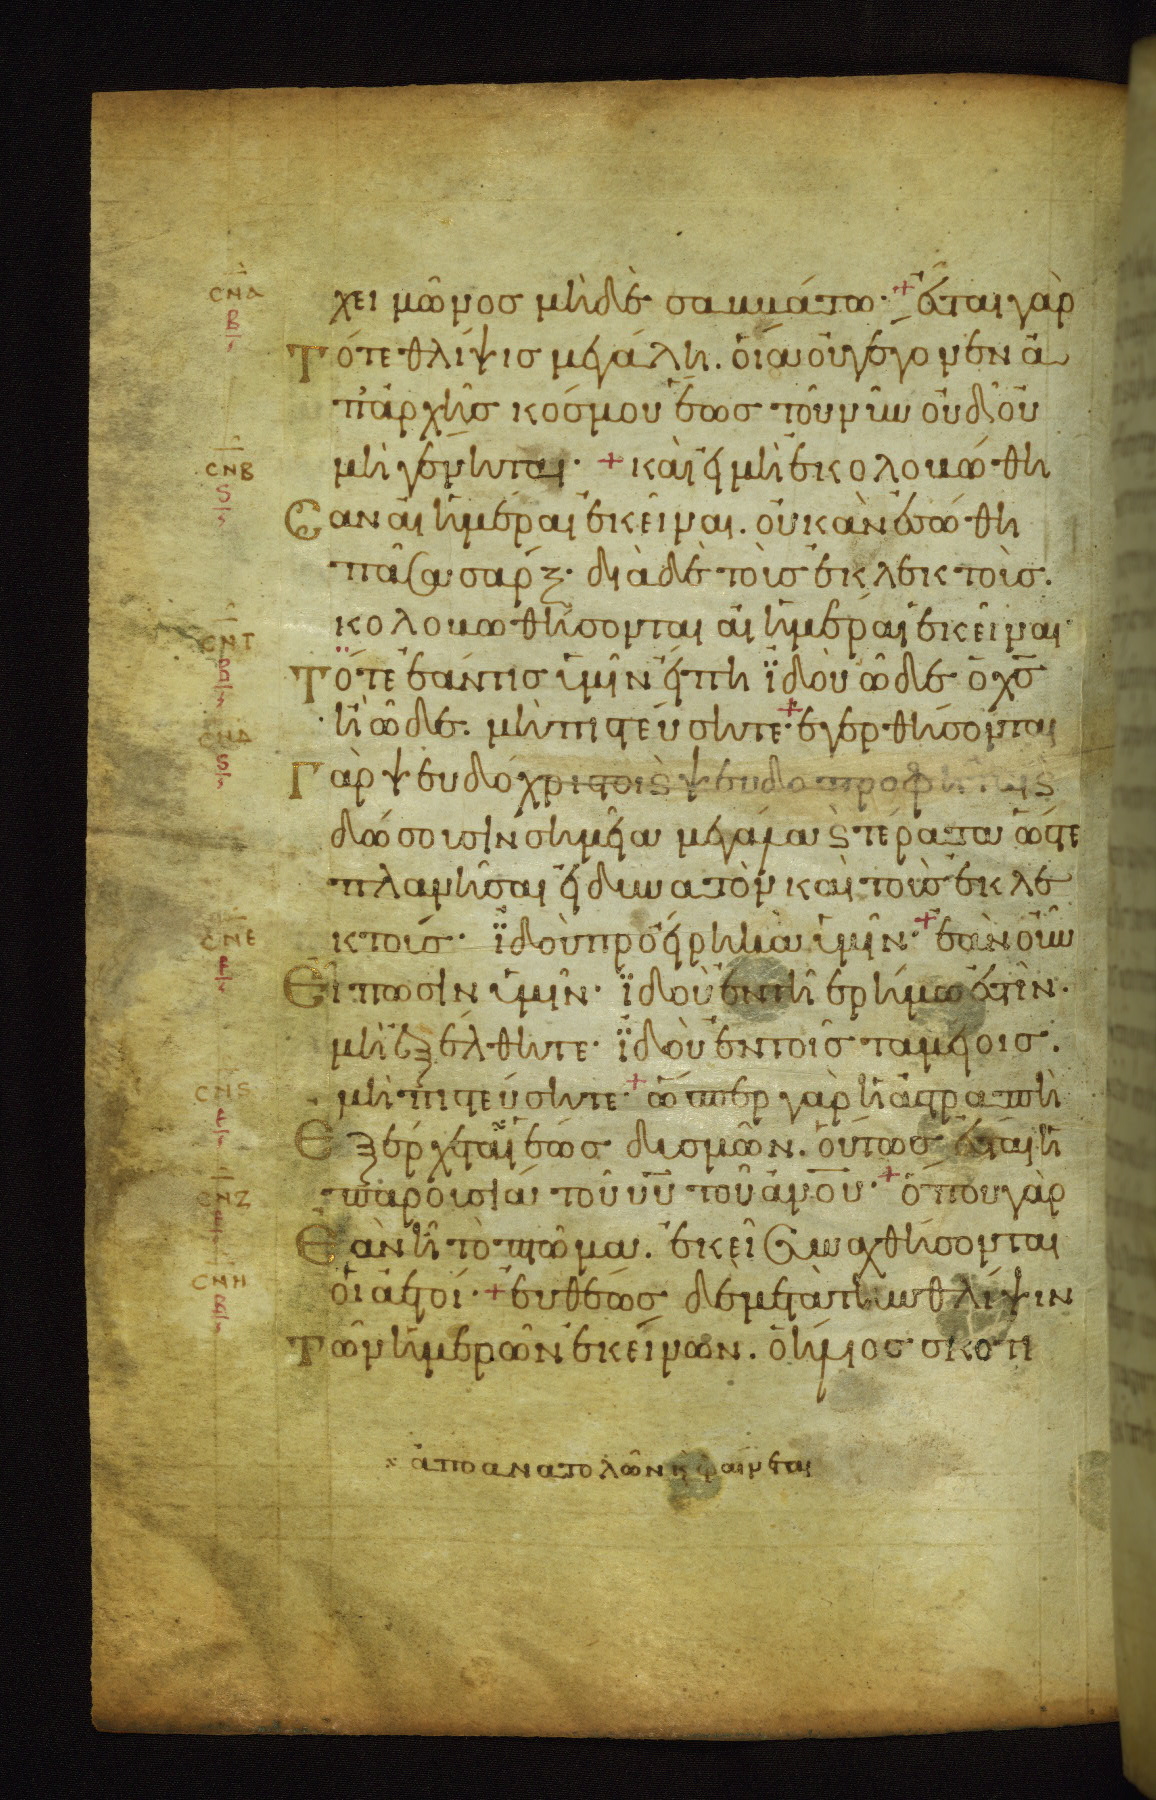 χειμῶνος μὴ δὲ σαββάτω· + ἔσται γὰρ
τότε θλίψις μεγάλη. οἵα οὐ γέγονεν ἀ
π' ἀρχῆς κόσμου ἕως τοῦ νῦν οὐδ' οὐ
μὴ γένηται· + καὶ εἰ μὴ ἐκολοβώθη
σαν αἱ ἡμέραι ἐκεῖναι. οὐκ ἂν ἐσώθη
πᾶσα σάρξ· διὰ δὲ τοὺς ἐκλεκτοὺς.
κολοβωθήσονται αἱ ἡμέραι ἐκεῖναι·
τότε ἐάν τις ὑμῖν εἴπη ἰδοὺ ὧδε ὁ χς
ἢ ὧδε. μὴ πιστεύσητε· + ἐγερθήσονται
γὰρ ψευδόχριστοι ϗ ψευδοπροφῆται ϗ
δώσουσιν σημεῖα μεγάλα ϗ τέρατα ὥστε
πλανῆσαι εἰ δυνατὸν καὶ τοὺς ἐκλε
κτούς· ἰδοὺ προείρηκα ὑμῖν· + ἐὰν οὖν
εἴπωσιν ὑμῖν· ἰδοὺ ἐν τῆ ἐρήμω ἐστὶν·
μὴ ἐξέλθητε· ἰδοὺ ἐν τοῖς ταμείοις.
μὴ πιστεύσητε· + ὥσπερ γὰρ ἡ ἀστραπὴ
ἐξέρχεται ἕως δυσμῶν. οὕτως ἔσται ἡ
παρουσία τοῦ υυ τοῦ ἀνου· + ὅπου γὰρ
ἐὰν ῇ τὸ πτῶμα. ἐκεῖ συναχθήσονται
οἱ ἀετοί· + εὐθέως δὲ μετὰ τὴν θλίψιν
τῶν ἡμερῶν ἐκείνων. ὁ ἥλιος σκοτι
ἀπο ἀνατολῶν ϗ φαίνεται
СΝΑ
Β
СΝΒ
Ϛ
СΝΓ
Β
СΝΔ
Ϛ
СΝΕ
Ε
СΝϚ
Ε
СΝΖ
Ε
СΝΗ
Β